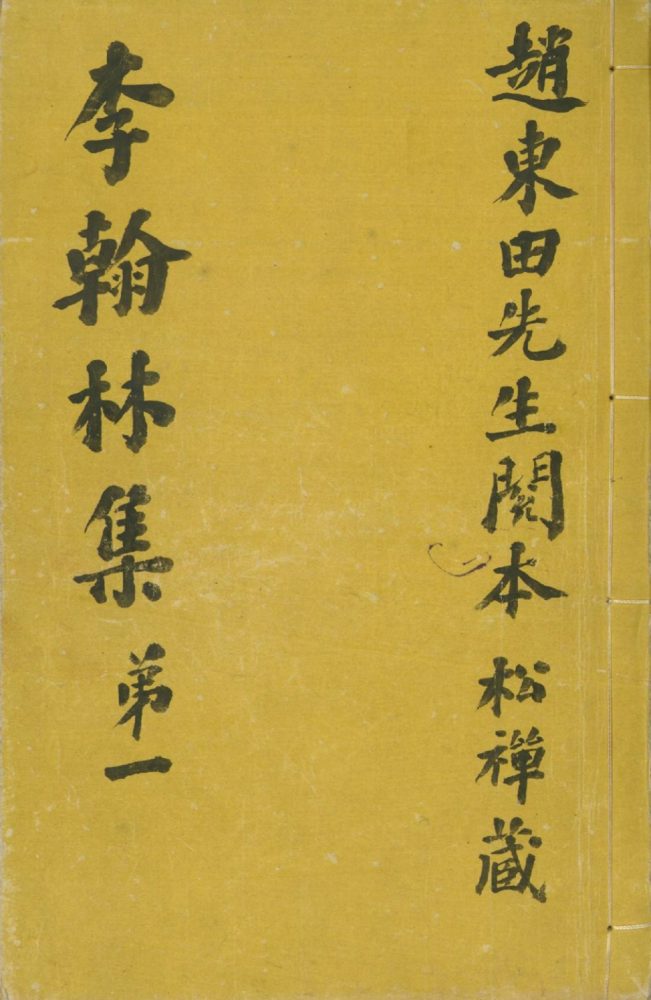 趙東田先生閱本 松禪藏
李翰林集 第一